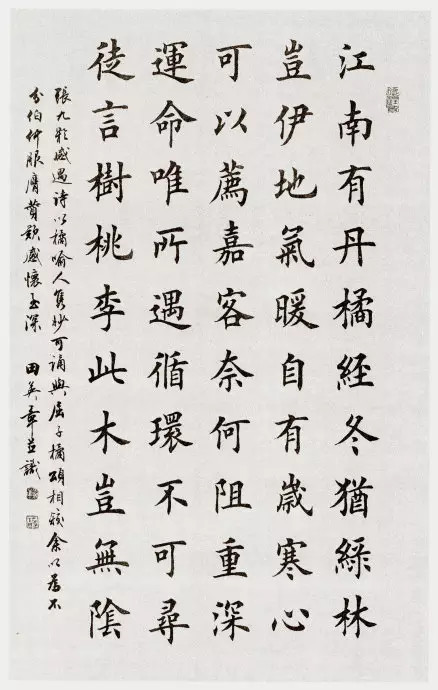 江南有丹橘經冬猶綠林
豈伊地氣暖自有歲寒心
可以薦嘉客奈何阻重深
運命唯所遇循環不可尋
徒言樹桃李此木豈無陰
張九齡感遇詩以橘喻人雋妙可誦與屈子橘頌相較余以為不
分伯仲服膺贊歎感懷至深 田英章並識